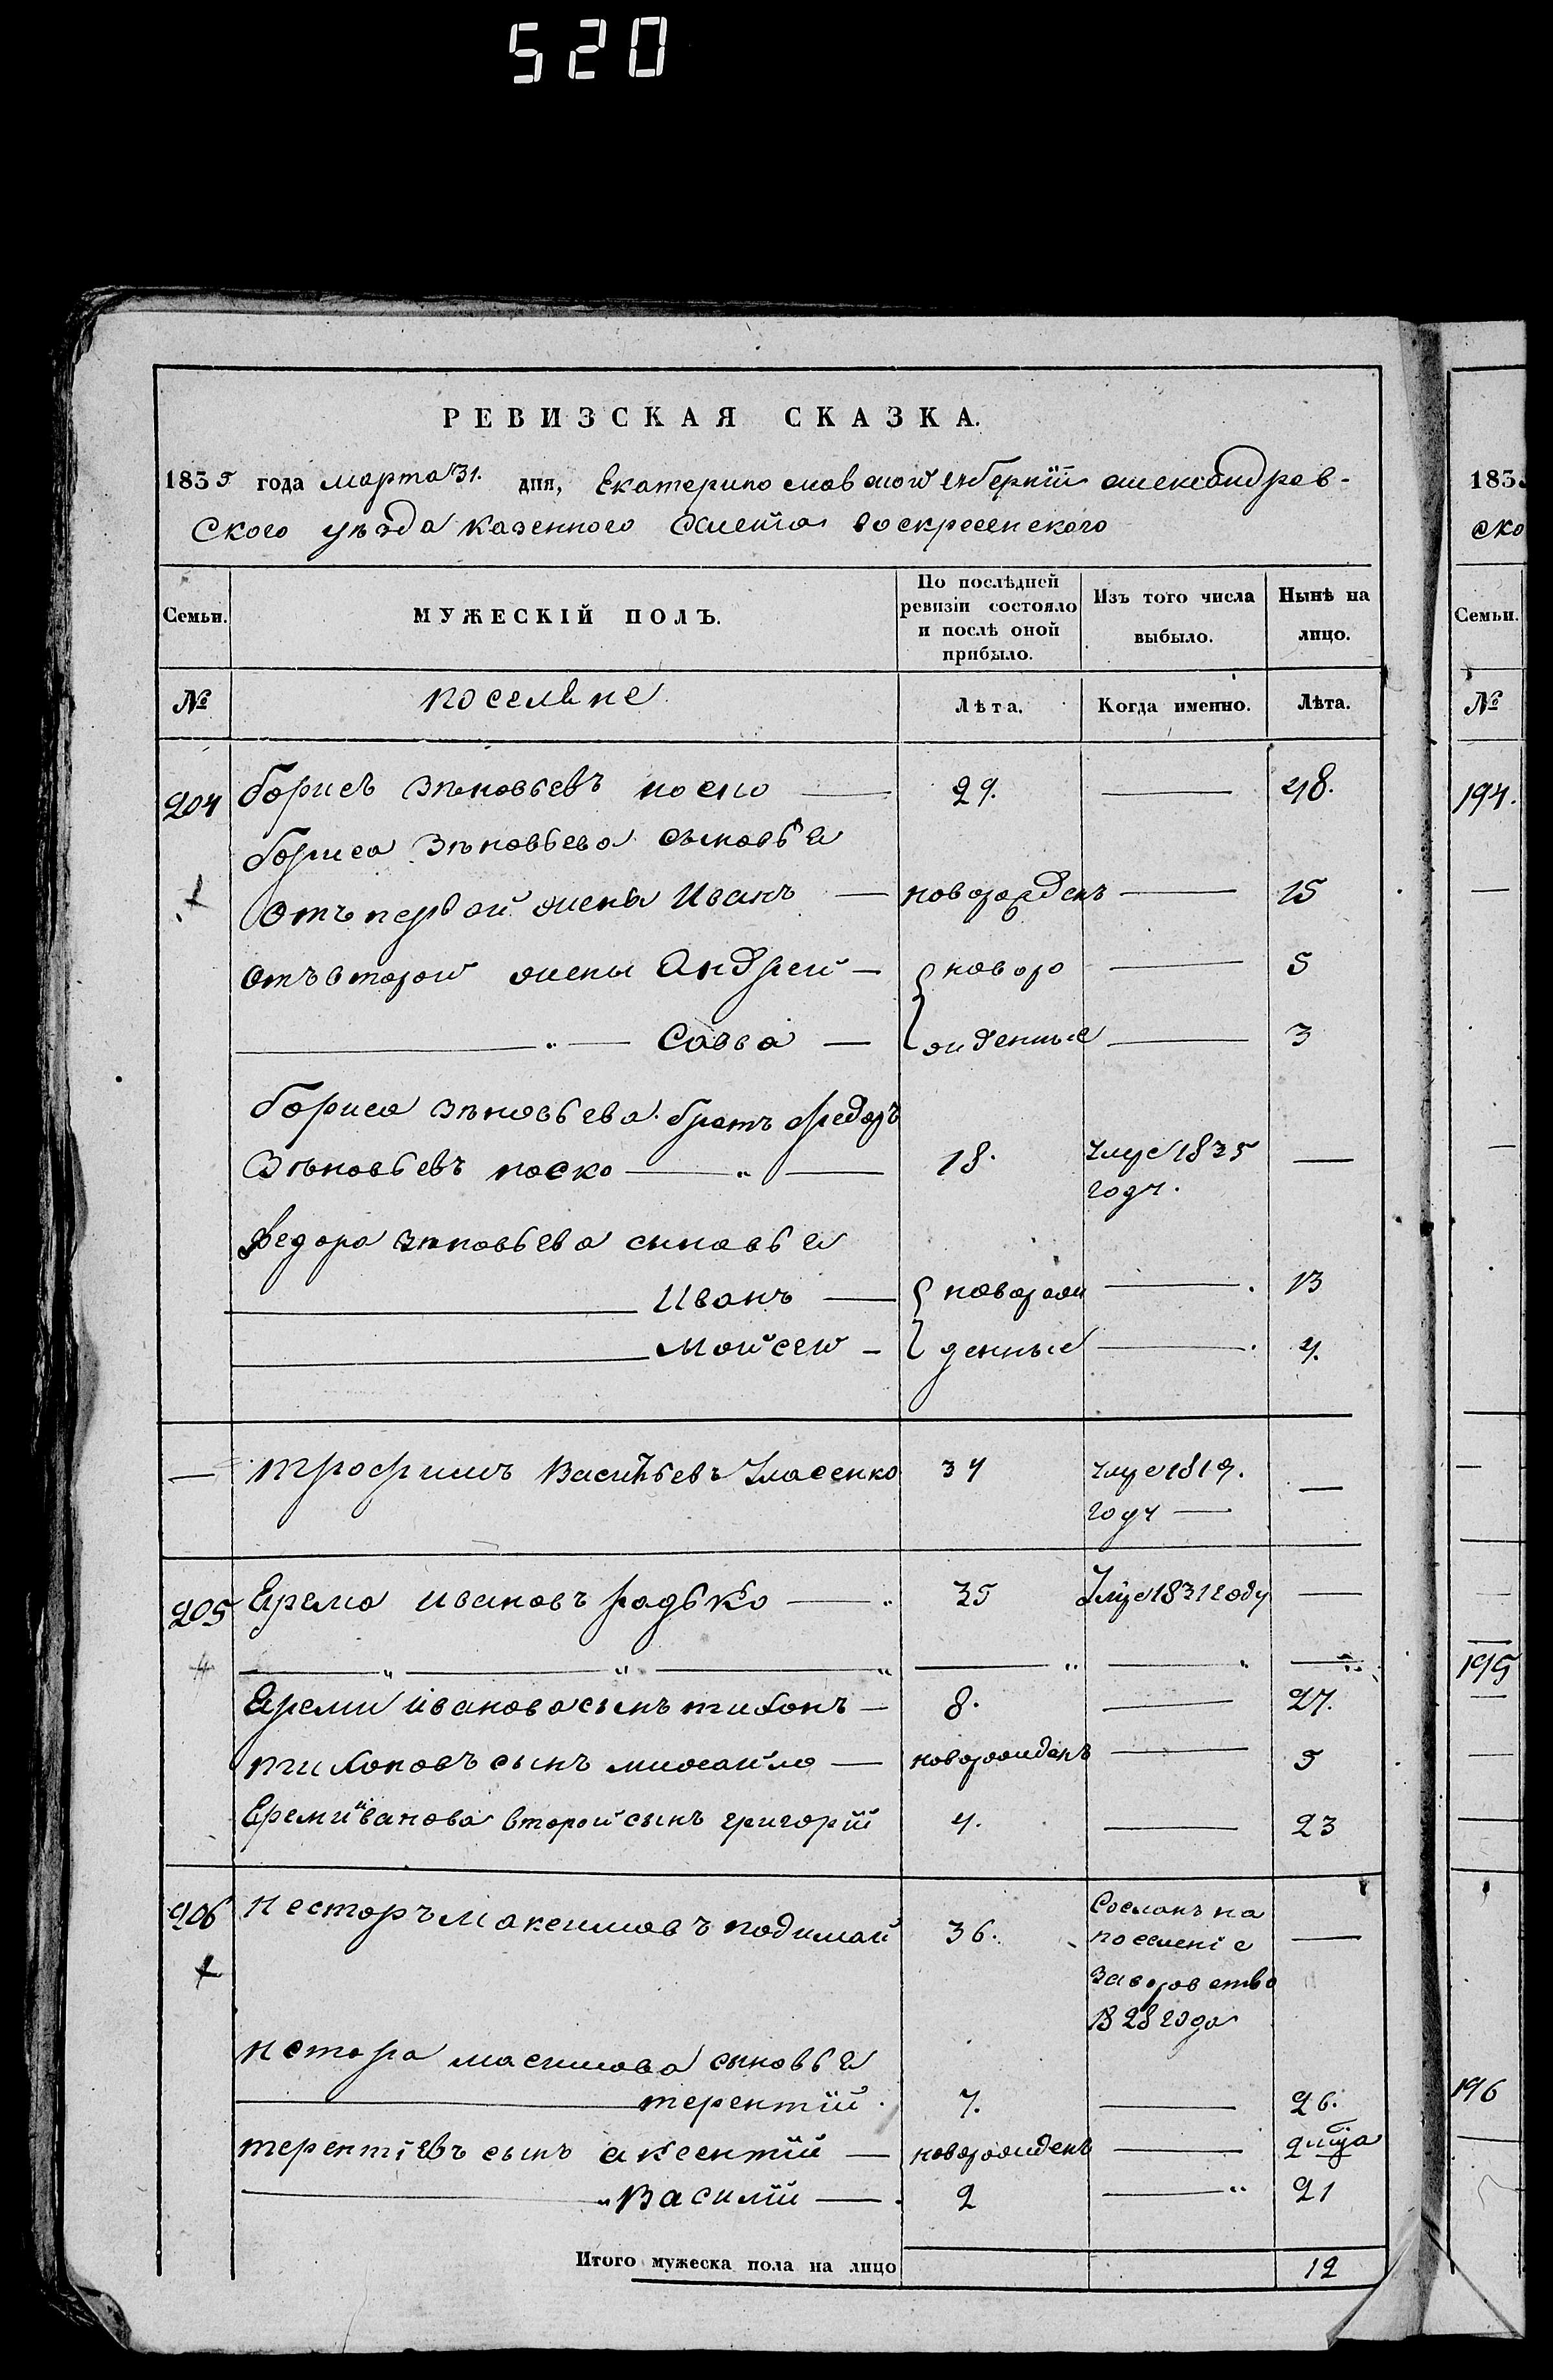 520
РЕВИЗСКАЯ СКАЗКА.
1835 года марта 31. дня, Екатеринославской губерніи александров-
ского уѣзда казенного селенія воскресенского
Семьи. МУЖЕСКІЙ ПОЛЪ. По послѣдней ревизіи состояло и послѣ оной прибыло. Изъ того числа выбыло. Нынѣ на лицо.
№ поселяне Лѣта. Когда именно. Лѣта.
204 борисъ Зѣновьевъ носко 29. 48.
бориса Зѣновьева сыновья
отъ первой жены Иванъ новорожденъ 15
отъ второй жены Андрей новоро 5
Савва жденные 3
бориса зѣновьева братъ федоръ
Зѣновьевъ носко 18. умре 1835
году.
федора зѣновьева сыновья
Иванъ новорож 13
Мойсей денные 4.
трофимъ Васильевъ Уласенко 34 умре 1819.
году
205 Ерема ивановъ радько 35 Умре 1831 году
Ереми иванова сынъ тихонъ 8. 27.
тихоновъ сынъ михайло новорожденъ 5
Ереми иванова второй сынъ григорій 4. 23
206 Несторъ Максимовъ подимай 36. Сосланъ на
поселеніе
За воровство
В 28 года
нстора масимова сыновья
терентій 7. 26.
терентіевъ сынъ аксентій новорожденъ
Василій 2 21
Итого мужеска пола на лицо 12
183
ско
Семьи.
№
194.
195
196